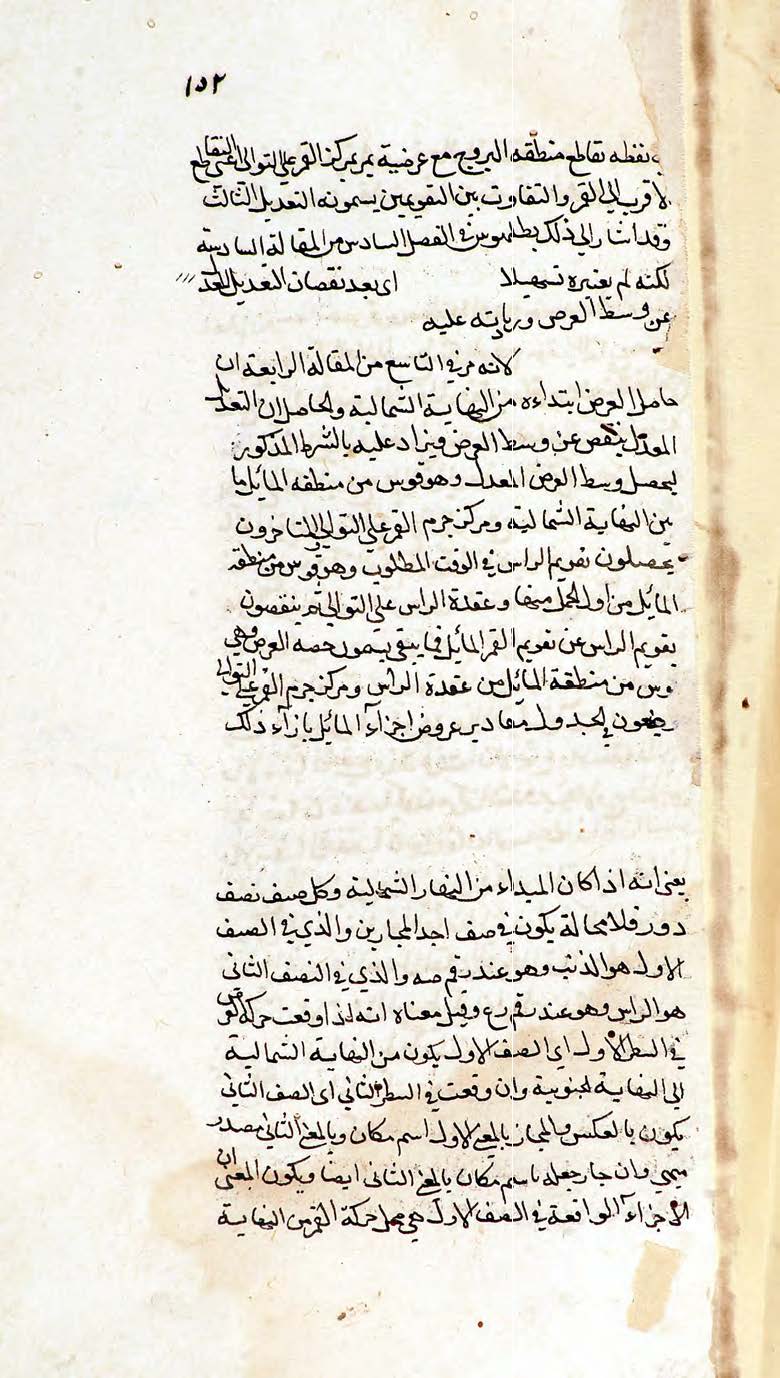 ١٥٢
نقطه تقاطع منطقه البروج مع عرضية يمر بمركز القمر علي التوالي اعني التقاطع
الاقرب الي القمر والتفاوت بين التقويمين يسمونه التعديل الثالث
وقد اشار الي ذلك بطلميوس في الفصل السادس من المقالة السادسة
لكنه لم يعتبره تسهيلا اى بعد نقصان التعديل المعدل
عن وسط العرض وزيادته عليه
لانه مر في التاسع من المقالة الرابعة ان
حامل العرض ابتداءه من النهاية الشمالية والحاصل ان التعديل
المعدل ينقص عن وسط العرض ويزاد عليه بالشرط المذكور
ليحصل وسط العرض المعدل وهو قوس من منطقه المائل ما
بين النهاية الشمالية ومركز جرم القمر علي التوالي والمتاخرون
يحصلون تقويم الراس في الوقت المطلوب وهو قوس من منطقة
المائل من اول الحمل منها وعقدة الراس علي التوالي ثم ينقصون
تقويم الراس عن تقويم القمر المائل فما يبقي يسمون حصه العرض وهي
قوس من منطقة المائل من عقدة الراس ومركز جرم القمر علي التوالي
ويضعون لجدول مقادير عروض اجزآء المائل بازآء ذلك
يعني انه اذا كان المبداء من النهاية الشمالية وكل صف نصف
دور فلا محالة يكون في صف احد المجازين والذي في الصف
الاول هو الذنب وهو عند رقم صه والذي في النصف الثاني
هو الراس وهو عند رقم رع وقيل معناه انه اذا وقعت حركة العرض
في السطر الاول اى الصف الاول يكون من النهاية الشمالية
الي النهاية الجنوبية وان وقعت في السطر الثاني اى الصف الثاني
يكون بالعكس والمجاز بالمعني الاول اسم مكان وبالمعني الثاني مصدر
ميمي وان جاز جعله اسم مكان بالمعني الثاني ايضا ويكون المعني ان
الاجزآء الواقعة في الصف الاول هي محل حركة القمر من النهاية